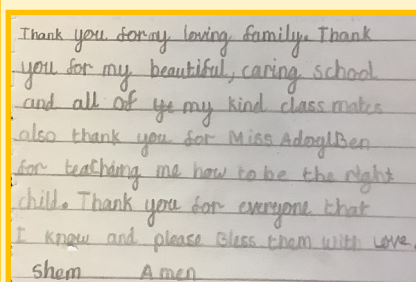 Thank you for my loving family. Thank
you for my beautiful, caring school
and all of ye my kind class mates
also thank you for Miss
for teaching me how to be the right
child. Thank you for everyone that
I know and please Bless them with love.
Shem Amen